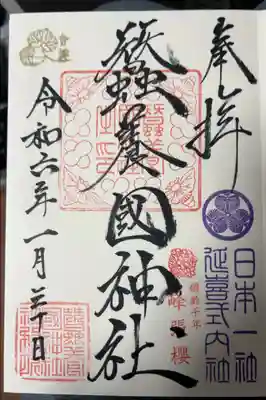 奉拝
日本一社
延喜式内社
樹齢千年
峰張櫻
蠶養國神社
令和六年一月三十日